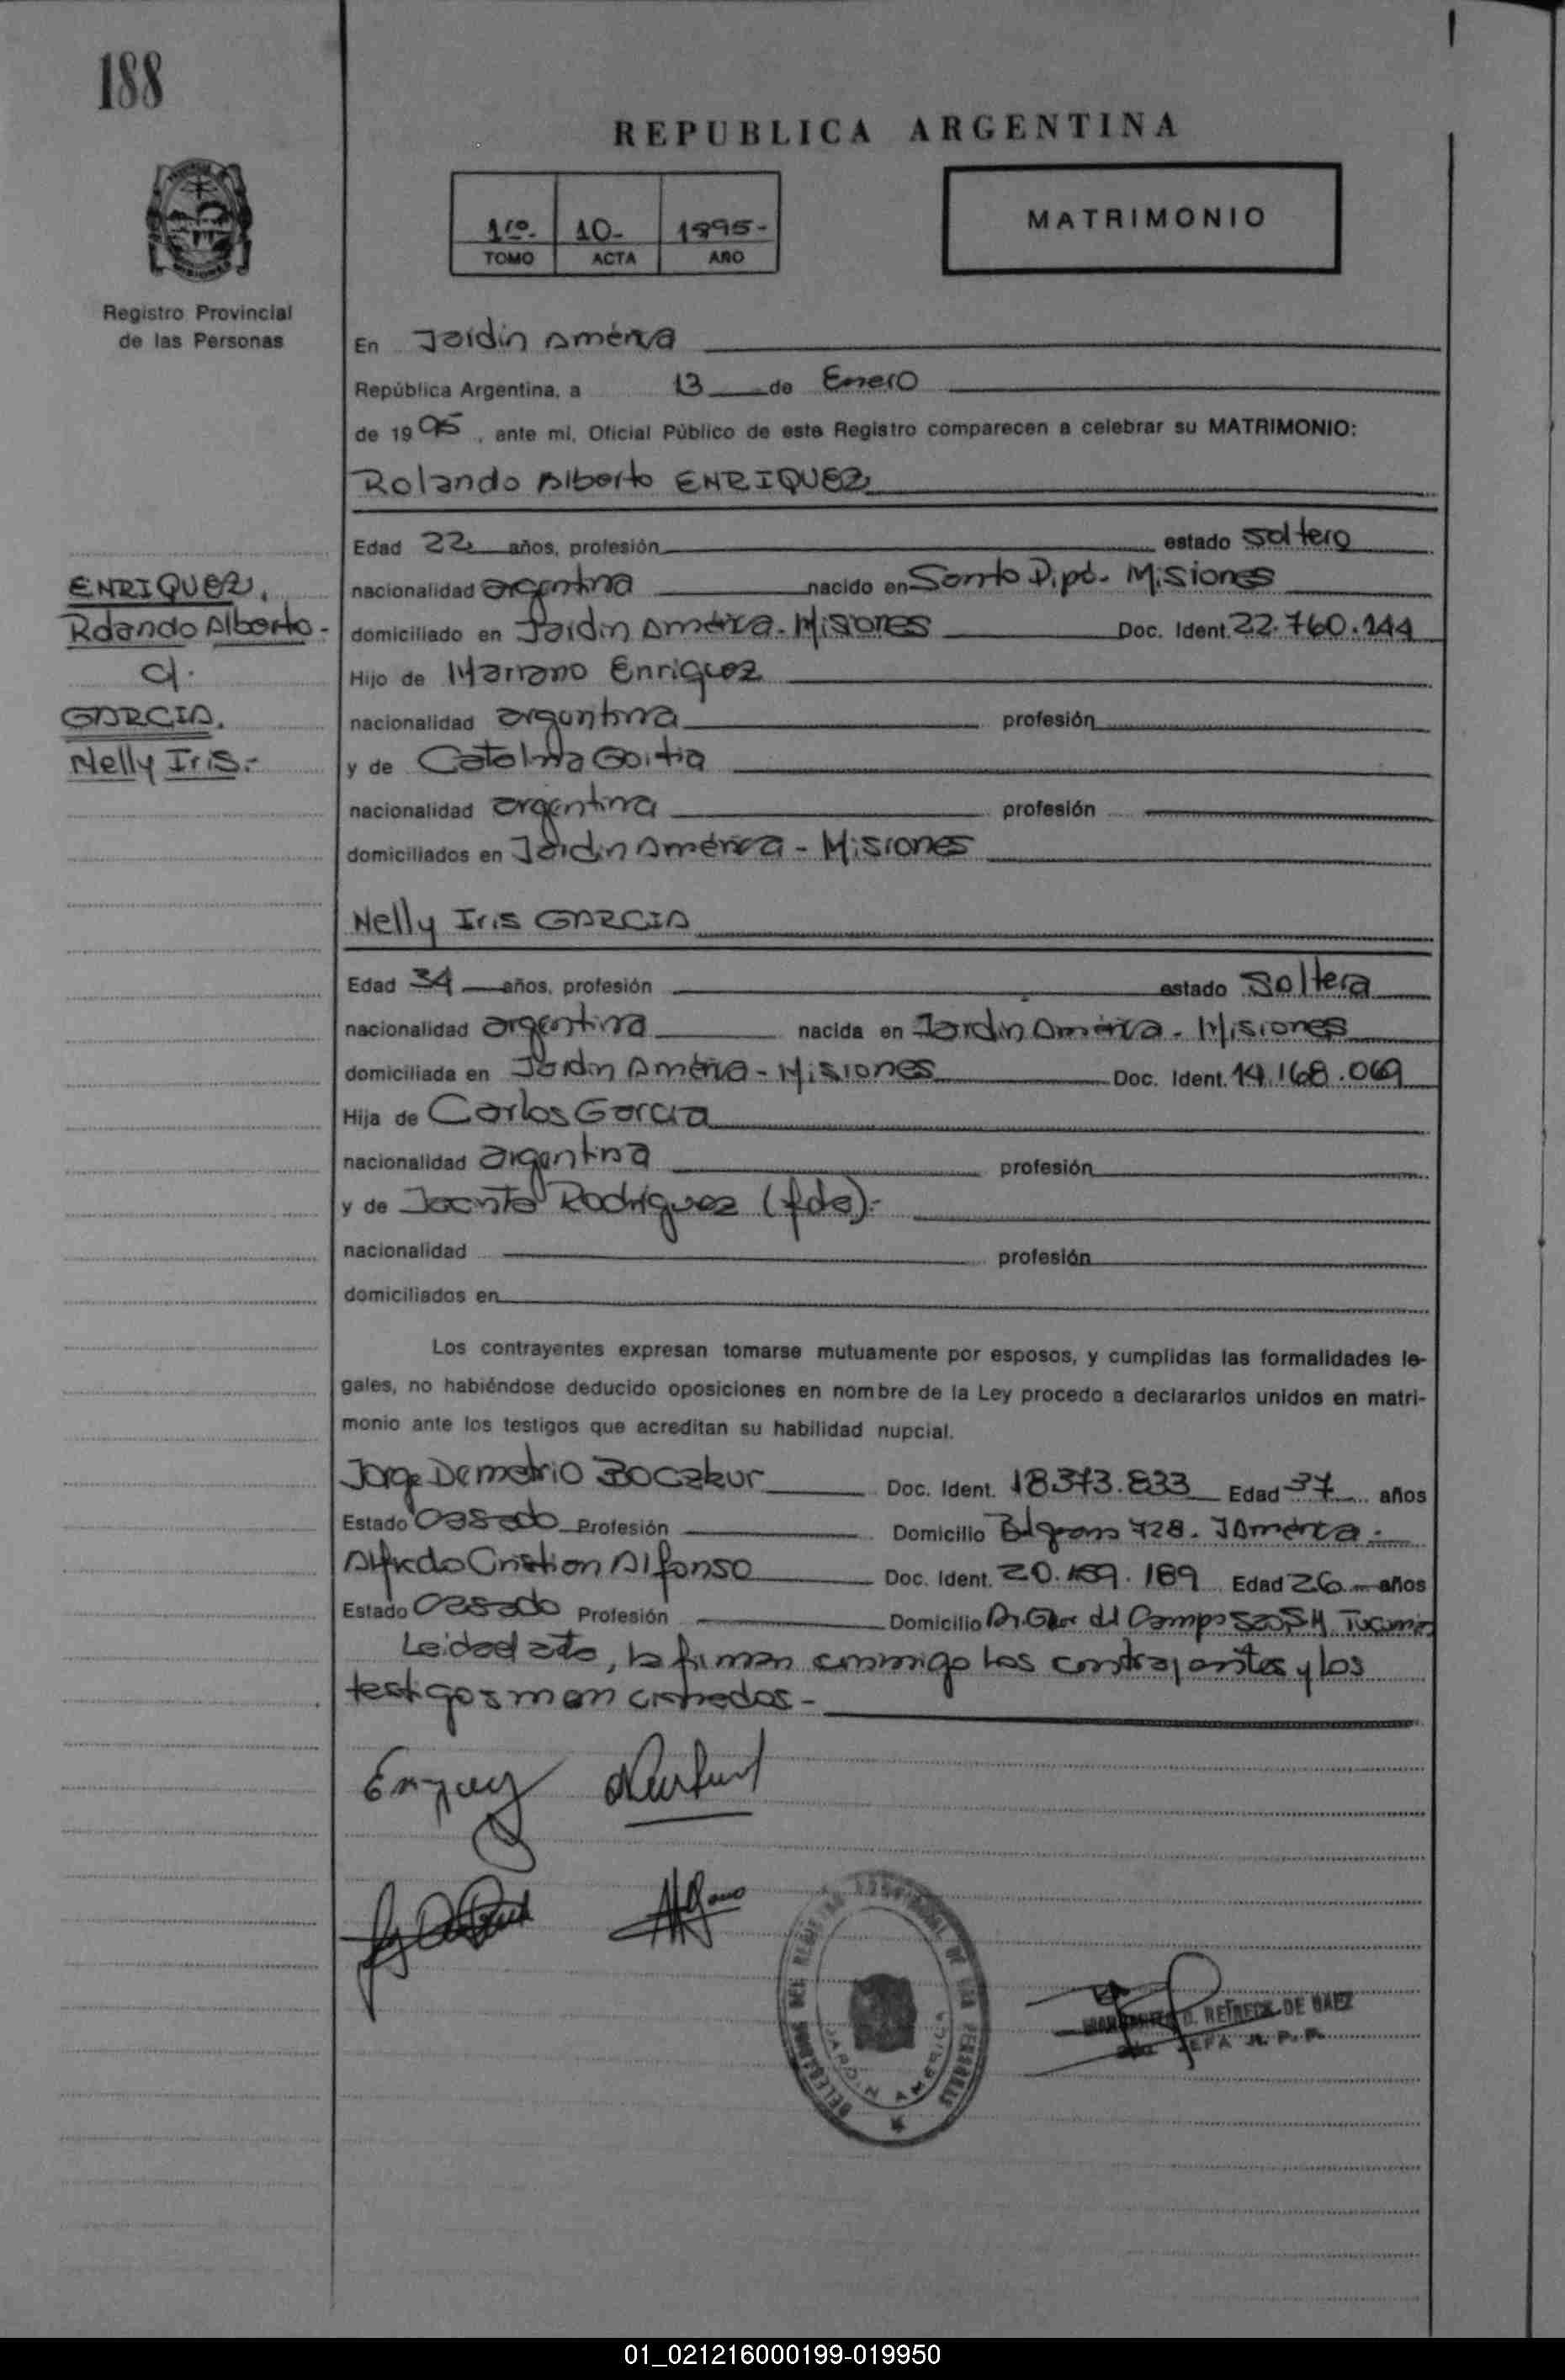 188
REPUBLICA ARGENTINA
1ro. 10- 1995-
TOMO ACTA AÑO
MATRIMONIO
Registro Provincial
de las Personas
En Jardín América
República Argentina, a 13 de Enero
de 1995, ante mi, Oficial Público de este Registro comparecen a celebrar su MATRIMONIO:
Rolando Alberto ENRIQUEZ
Edad 22 años, profesión estado soltero
ENRIQUEZ,
Rolando Alberto-
c/.
GARCIA,
Nelly Iris.-
nacionalidad argentina nacido en Santo Pipó- Misiones
domiciliado en Jardín América- Misiones Doc. Ident. 22.760.144
Hijo de Mariano Enriquez
nacionalidad argentina profesión
y de Catalina Goitia
nacionalidad argentina profesión
domiciliados en Jardín América - Misiones
Nelly Iris GARCIA
Edad 34 años, profesión estado soltera
nacionalidad argentina nacida en Jardín América - Misiones
domiciliada en Jardín América - Misiones Doc. Ident. 14.168.069
Hija de Carlos Garcia
nacionalidad argentina profesión
y de Jacinta Rodriguez (fda).-
nacionalidad profesión
domiciliados en
Los contrayentes expresan tomarse mutuamente por esposos, y cumplidas las formalidades le-
gales, no habiéndose deducido oposiciones en nombre de la Ley procedo a declararlos unidos en matri-
monio ante los testigos que acreditan su habilidad nupcial.
Jorge Demetrio Boczkur Doc. Ident. 18.373.833 Edad 37 años
Estado casado Profesión Domicilio Belgrano 728- J América.-
Alfredo Cristian Alfonso Doc. Ident. 20.159.189 Edad 26 años
Estado casado Profesión Domicilio del Campo Tucumán
Leída el acta, la firman conmigo los contrayentes y los
testigos mencionados-
DELEGACION DEL REGISTRO PROVINCIAL DE LAS PERSONAS
JARDIN AMERICA
D. RETRECK DE BAEZ
JEFA R. P. P.
01_021216000199-019950